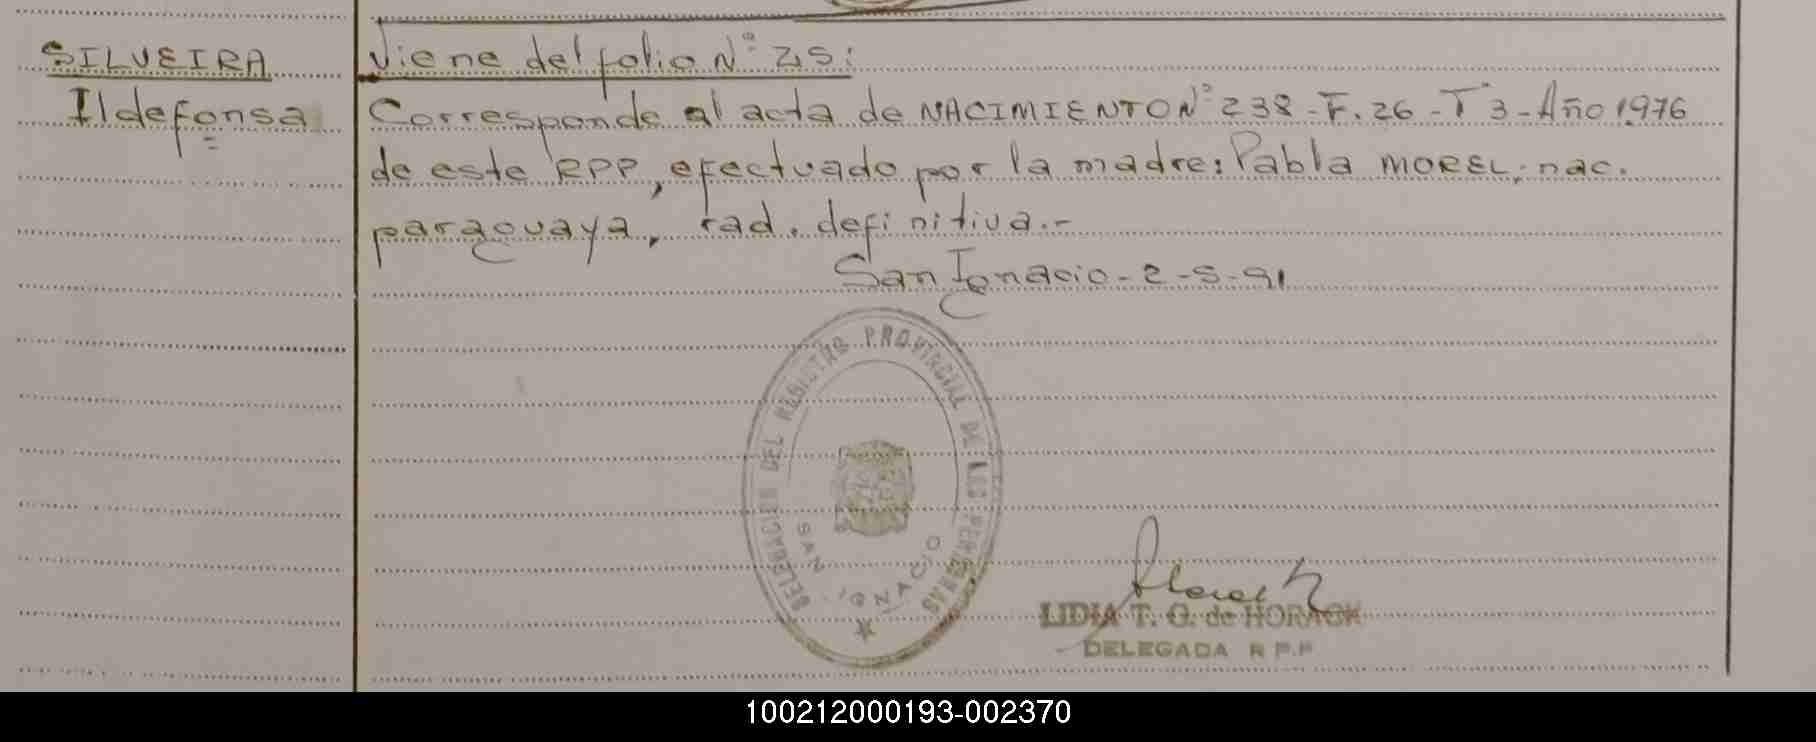 SILVEIRA
Ildefonsa
Viene del folio N° 25:
Corresponde al acta de NACIMIENTO N° 238-F.26-T°3-Año 1976
de este RPP, efectuado por la madre: Pabla MOREL, nac.
paraguaya, rad. definitiva.-
San Ignacio-2-5-91
DELEGACION DEL REGISTRO PROVINCIAL DE LAS PERSONAS
SAN IGNACIO
LIDIA T. G. de HORACH
DELEGADA R P.P
100212000193-002370